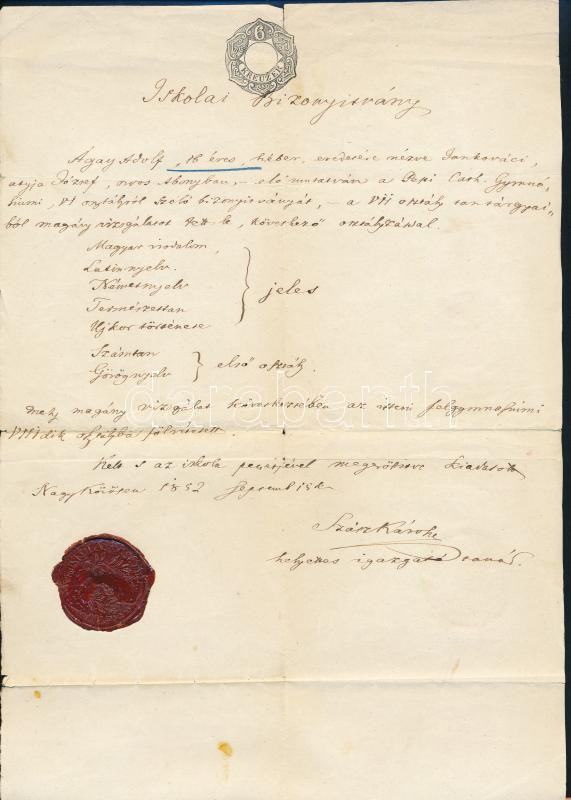 6
KREUZER
Iskolai Bizonyitvány
Ágay Adolf, 16 éves, héber, eredetére nézve Jankováci,
atyja József, orvos Abonyban, – elő mutatván a Pesti Cath. Gymná-
siumi, VI osztályról szóló bizonyitványát, – a VII osztály tan tárgyai-
ból magány vizsgálatot tett le, következő osztályzással.
Magyar irodalom,
Latin nyelv.
Német nyelv
Természettan
Ujkor története
jeles
Számtan
Görög nyelv
első osztály.
mely magány vizsgálat következtében az itteni felgymnasiumi
VIIIdik osztályba fölvétetett.
Kelt s az iskola pecsétjével megerősitve kiadatott
Nagy Kőrösön 1852 September
Szász Károly
helyettes igazgató tanár.
darabanth